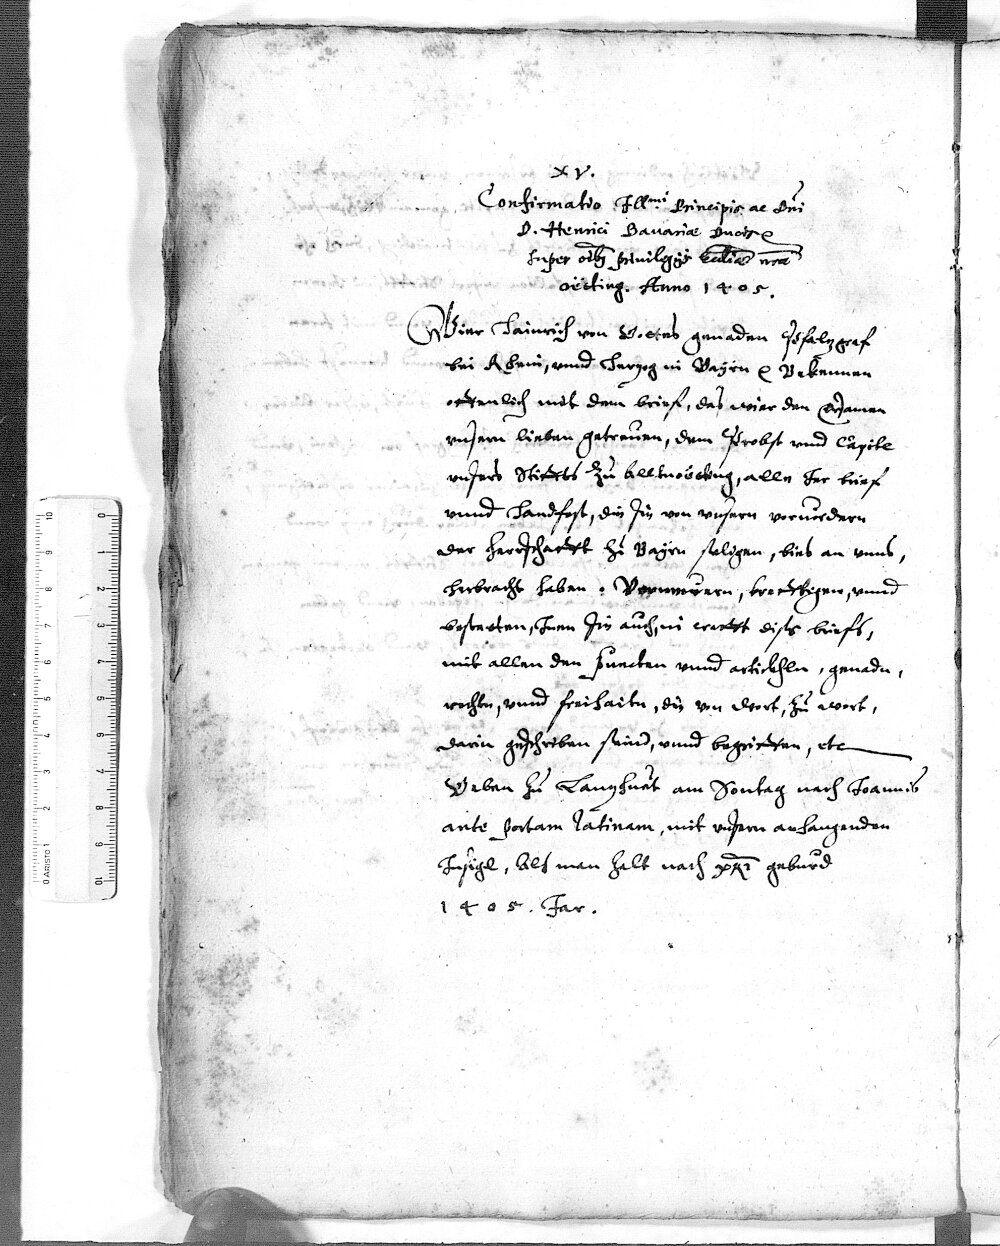 XV.
Confirmatio Ill.mi Principis ac Dñi
D. Henrici Bavariæ Ducis
super oïb9 privilegijs Eccliæ nræ
oëting. Anno 1405.
Wier Hainrich von Gottes genaden Pfalzgraf
bei Rhein, vnnd Herzog in Bayrn Bekennen
offenlich mit dem brief, das wier den Ersamen
vnsern lieben getreuen, dem Probst vnnd Capitl
vnsers Stiffts zu Alltenoëting, alle Ier brief
vnnd Handfest, die sie von vnsern vorvordern
der herrschafft zu Bayrn seligen, bies an vnns,
herbracht haben. Vernewern, kreftigen, vnnd
bestetten, Inen sie auch, in crafft diss briefs,
mit allen den puncten vnnd artickhln, genadn,
rechtn, vnnd freihaitn, die von wort, zu wort,
darin geschriben seind, vnnd begriffen, etc
Geben zu Lanzhuet am Sontag nach Joannis
ante portam latinam, mit vnserm anhangenden
Insigl, Als man zalt nach xp̃i geburd
1405. Jar.
0 1 2 3 4 5 6 7 8 9 10
10 9 8 7 6 5 4 3 2 1 0 ARISTO